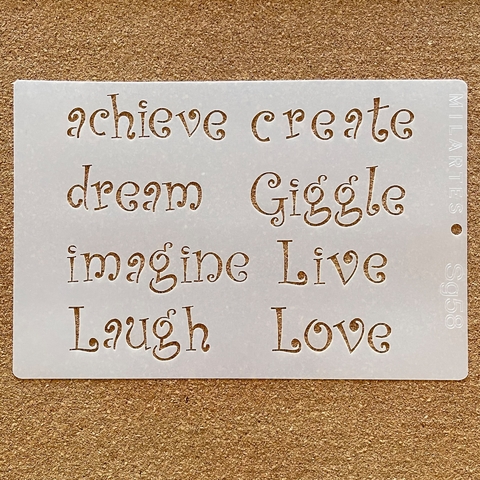 achieve create
dream Giggle
imagine Live
Laugh Love
MILARTES
Sg58